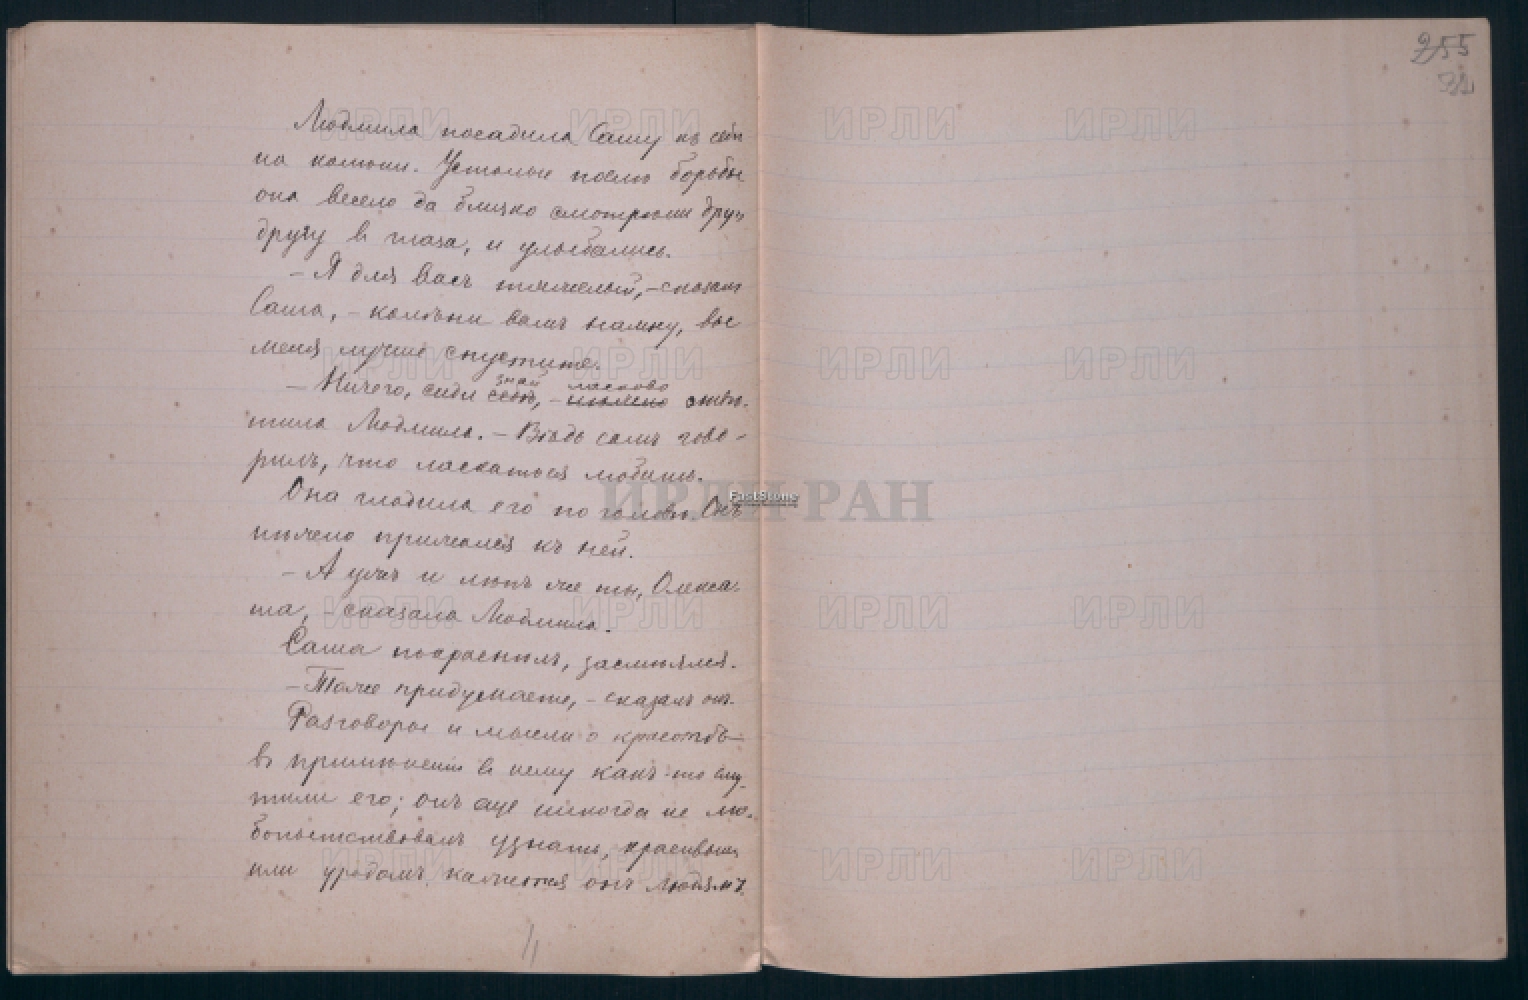 255
31
Людмила посадила Сашу къ себѣ
на колѣни. Усталые послѣ борьбы
они весело да близко смотрѣли другъ
другу в глаза, и улыбались.
– Я для васъ тяжелый, – сказалъ
Саша, – колѣни вамъ намну, вы
меня лучше спустите.
знай ласково
– Ничего, сиди себѣ, – нѣжно отвѣ-
тила Людмила. – Вѣдь самъ гово-
рилъ, что ласкаться любишь.
Она гладила его по головѣ. Онъ
нѣжно прижался къ ней.
– А ужъ и лѣпъ же ты, Олекса-
ша, – сказала Людмила.
Саша покраснѣлъ, засмѣялся.
– Тоже придумаете, – сказалъ онъ.
Разговоры и мысли о красотѣ
въ примѣненіи к нему какъ-то сму-
тили его; онъ еще никогда не лю-
бопытствовалъ узнать, красивымъ
или уродомъ кажется онъ людямъ.
ИРЛИ РАН
FastStone
ИРЛИ ИРЛИ ИРЛИ ИРЛИ
ИРЛИ ИРЛИ ИРЛИ ИРЛИ
ИРЛИ ИРЛИ ИРЛИ ИРЛИ
ИРЛИ ИРЛИ ИРЛИ ИРЛИ